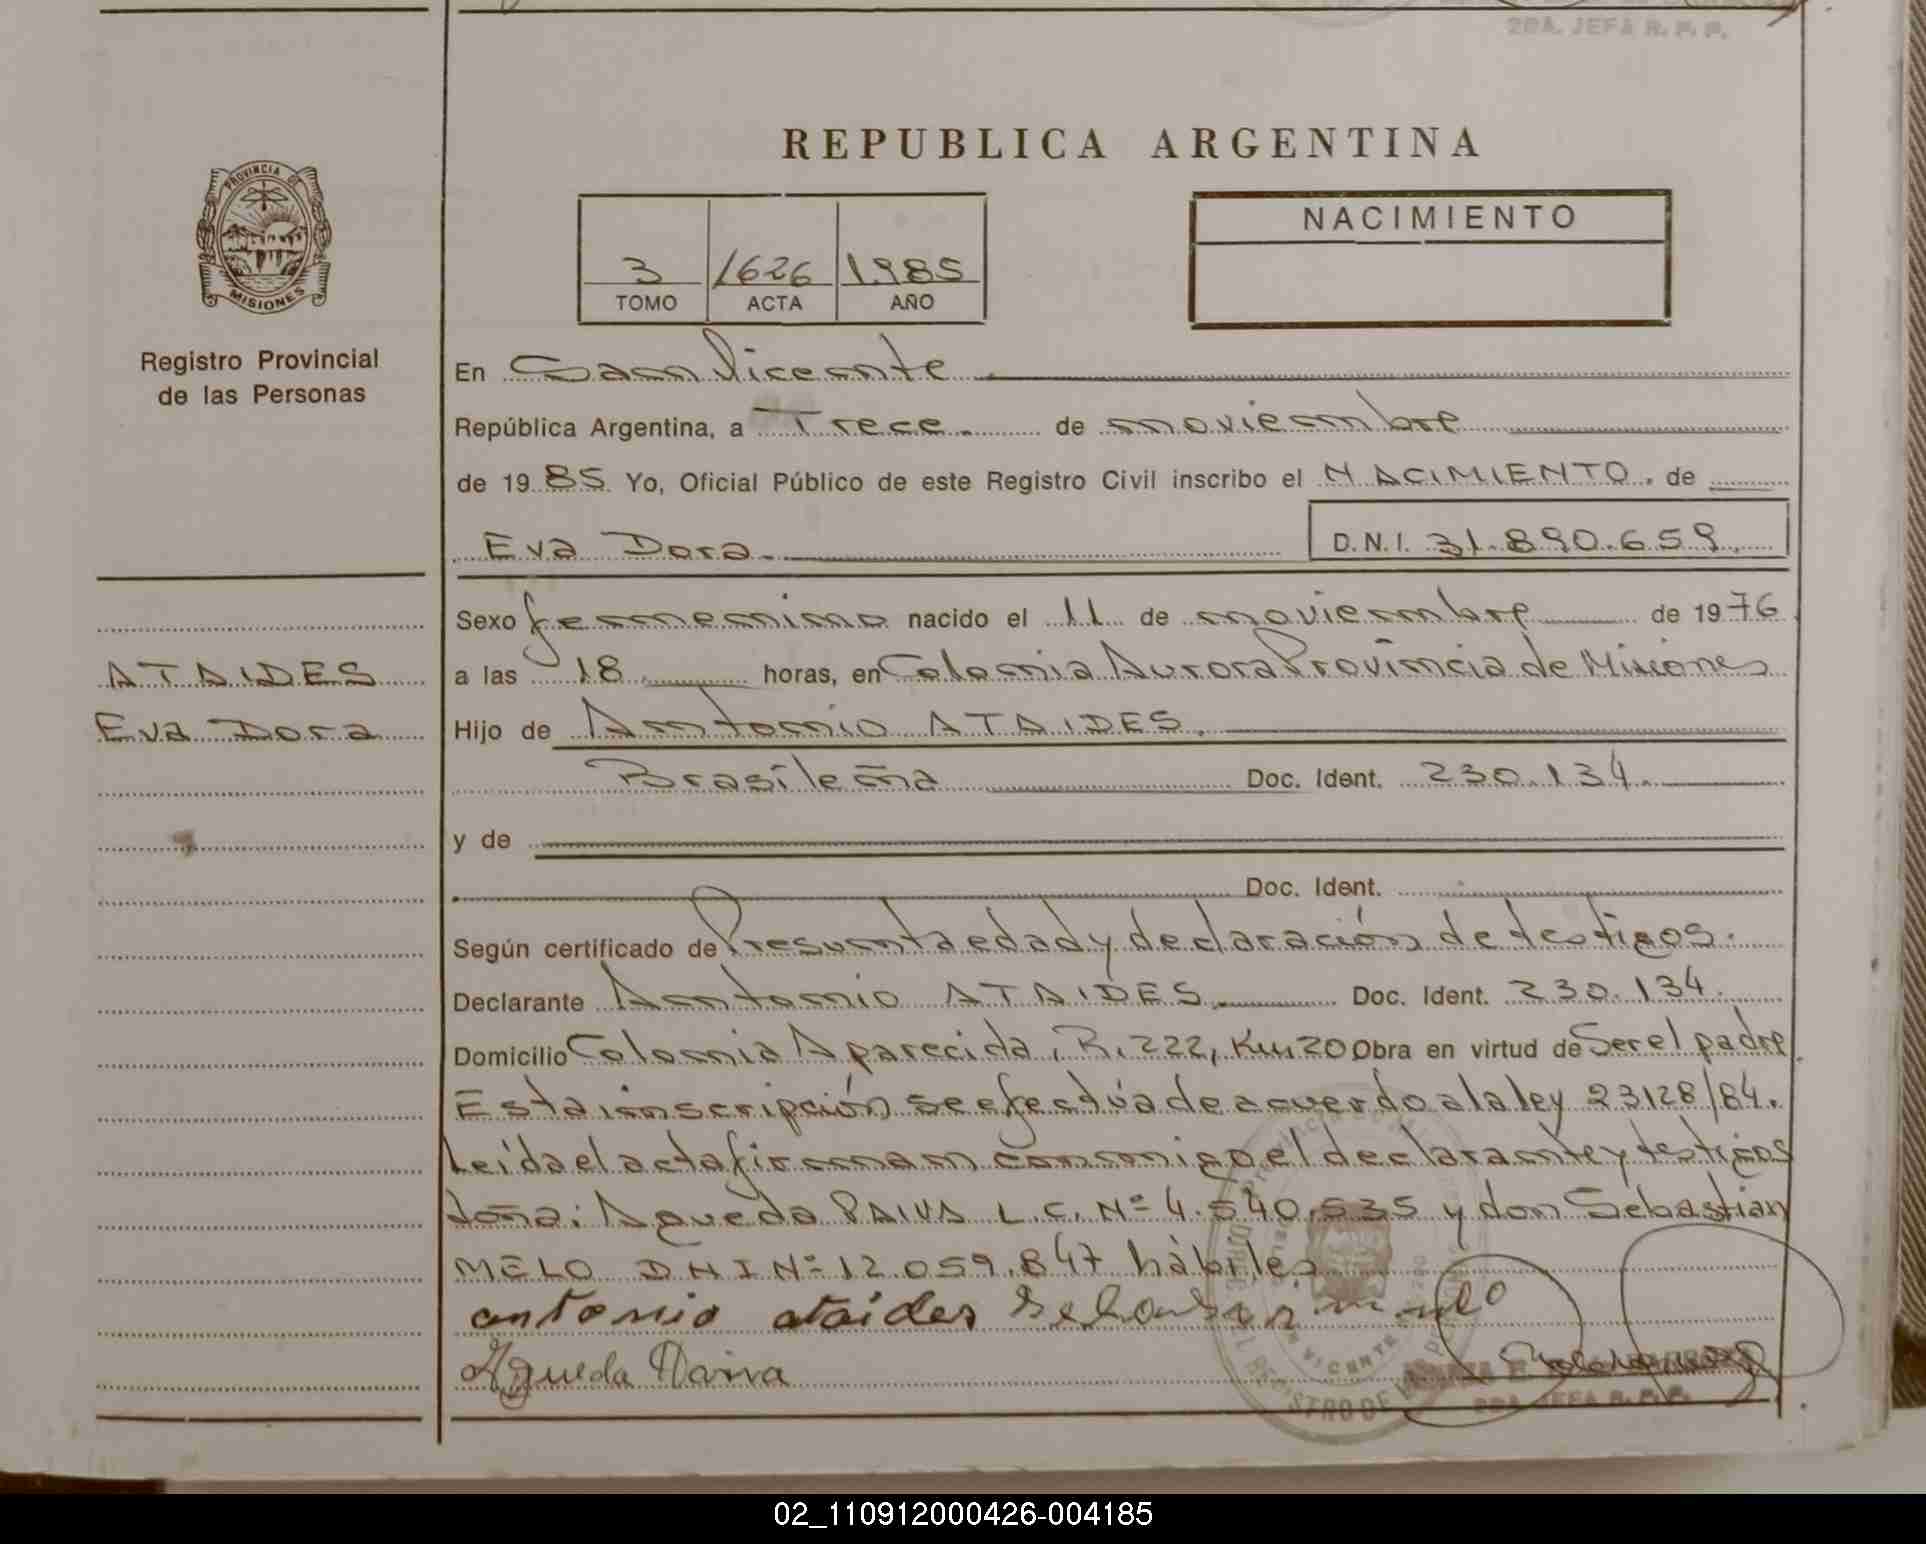 2DA. JEFA R. P. P.
REPUBLICA ARGENTINA
PROVINCIA DE
MISIONES
Registro Provincial
de las Personas
3 1626 1985
TOMO ACTA AÑO
NACIMIENTO
En San Vicente
República Argentina, a Trece. de noviembre
de 1985 Yo, Oficial Público de este Registro Civil inscribo el NACIMIENTO. de
Eva Dora. D.N.I. 31.890.659.
Sexo femenino nacido el 11 de noviembre de 1976
ATAIDES
Eva Dora
a las 18 horas, en Colonia Aurora Provincia de Misiones
Hijo de Antonio ATAIDES.
Brasileña Doc. Ident. 230.134.
y de
Doc. Ident.
Según certificado de Presunta edad y declaración de testigos.
Declarante Antonio ATAIDES. Doc. Ident. 230.134.
Domicilio Colonia Aparecida, R. 222, Km 20 Obra en virtud de Ser el padre
Esta inscripción se efectúa de acuerdo a la ley 23128/84.
Leída el acta firman conmigo el declarante y testigos
doña: Agueda PAIVA L.C. Nº 4.540.535 y don Sebastian
MELO DNI Nº 12.059.847 hábiles
antonio ataides
Agueda Paiva
2DA. JEFA R. P. P.
02_110912000426-004185